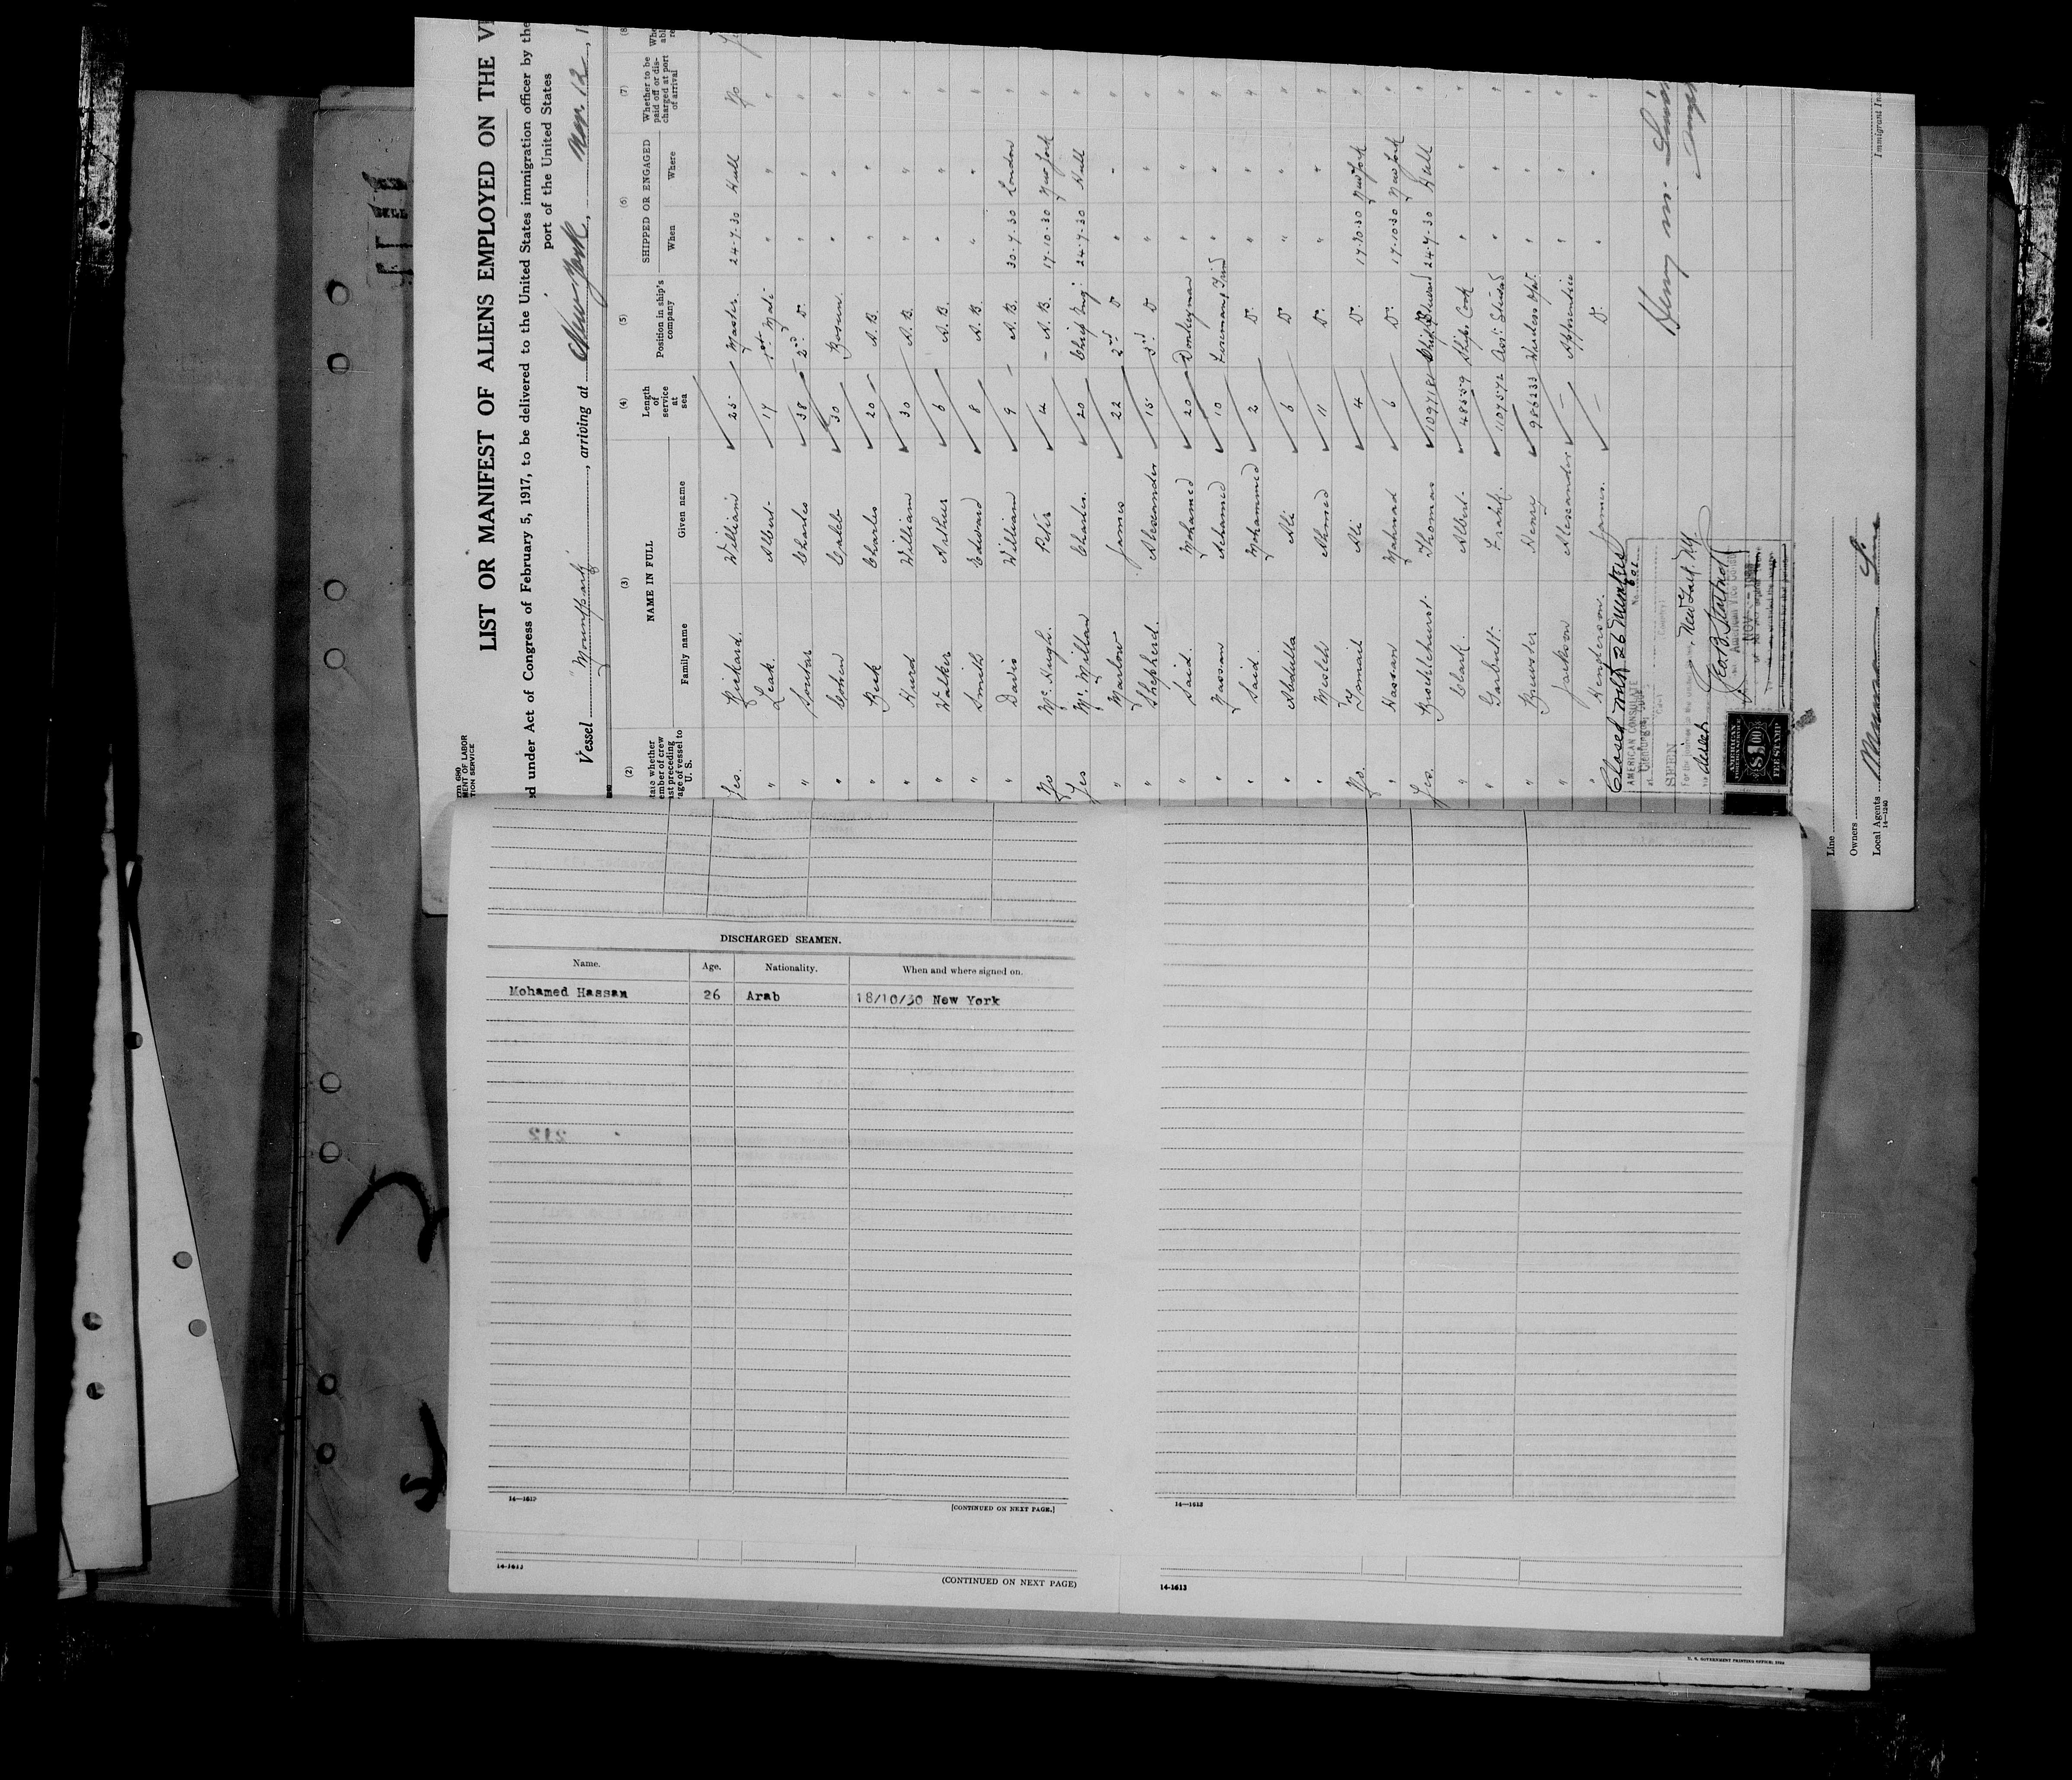 LIST OR MANIFEST OF ALIENS EMPLOYED ON THE
under Act of Congress of February 5, 1917, to be delivered to the United States immigration officer by the
port of the United States
Vessel "Youngpark", arriving at New York, Nov. 12, 1
(2) (3) (4) (5) (6) (7)
NAME IN FULL
SHIPPED OR ENGAGED
Family name Given name Length of service at sea Position in ship's company When Where Whether to be paid off or discharged at port of arrival
Yes. Rickard. William 25 Master. 24-7-30 Hull No
" Leak. Albert 17 1st Mate " " "
" Soutar Charles 38 2nd D. " " "
" Cohen Caleb 30 Bosun. " " "
" Beek Charles 20 A.B. " " "
" Hurd William 30 A.B. " " "
" Walker Arthur 6 A.B. " " "
" Smith Edward 8 A.B. " " "
" Davis William 9 A.B. 30-7-30 London "
No McHugh. Peter 4 A.B. 17-10-30 New York "
Yes McMillan Charles. 20 Chief Eng. 24-7-30 Hull "
" Marlow James 22 2nd D " " "
" Shepherd. Alexander 15 3rd D " " "
" Said. Mohamed 20 Donkeyman " " "
" Hassan Achamed 10 Fireman & Trim " " "
" Said Mohammed 2 D. " " "
" Abdulla Ali 6 D " " "
" Mosleh Ahmed 11 D. " " "
No. Ismail Ali 4 D. 17-10-30 New York "
" Hassan Mahmad 6 D. 17-10-30 New York "
Yes. Thomas 1097181 Chief Steward 24-7-30 Hull "
" Clark. Albert 48559 Ships Cook " " "
" Garbutt. Frank. 1107572 Asst. Steward " " "
" Brewster Henry 986233 Wireless Opr. " " "
" Jackson Alexander - Apprentice " " "
" Henderson. James. - D. " " "
Closed with 26 Members
AMERICAN CONSULATE
SEEN
New York, NY
AMERICAN
$1.00
FEE STAMP
Line
Owners
Local Agents
14—1240
Immigrant In
DISCHARGED SEAMEN.
Name. Age. Nationality. When and where signed on.
Mohamed Hassan 26 Arab 18/10/30 New York
14—1613
[CONTINUED ON NEXT PAGE.]
14—1613
14-1613
(CONTINUED ON NEXT PAGE)
14-1613
U. S. GOVERNMENT PRINTING OFFICE: